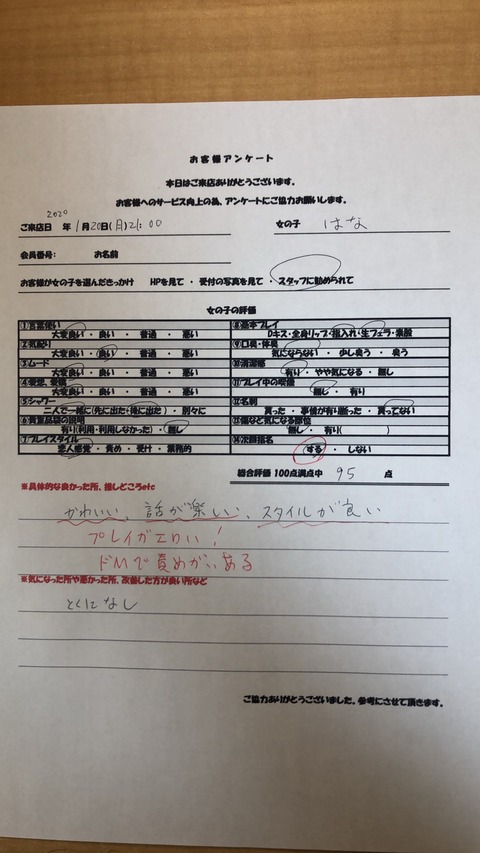 お客様アンケート
本日はご来店ありがとうございます。
お客様へのサービス向上の為、アンケートにご協力お願いします。
2020
ご来店日 年 1月20日(月)21:00 女の子 はな
会員番号: お名前
お客様が女の子を選んだきっかけ HPを見て ・ 受付の写真を見て ・ スタッフに勧められて
女の子の評価
①言葉使い
大変良い ・ 良い ・ 普通 ・ 悪い
②気配り
大変良い ・ 良い ・ 普通 ・ 悪い
③ムード
大変良い ・ 良い ・ 普通 ・ 悪い
④愛想、愛嬌
大変良い ・ 良い ・ 普通 ・ 悪い
⑤シャワー
二人で一緒に(先に出た・後に出た) ・ 別々に
⑥貴重品袋の説明
有り(利用・利用しなかった) ・ 無し
⑦プレイスタイル
恋人感覚 ・ 責め ・ 受け ・ 業務的
⑧基本プレイ
Dキス・全身リップ・指入れ・生フェラ・素股
⑨口臭・体臭
気にならない ・ 少し臭う ・ 臭う
⑩清潔感
有り ・ やや気になる ・ 無し
⑪プレイ中の喫煙
無し ・ 有り
⑫名刺
貰った ・ 事情が有り断った ・ 貰ってない
⑬傷など気になる部位
無し ・ 有り( )
⑭次回指名
する ・ しない
総合評価 100点満点中 95 点
※具体的な良かった所、推しどころetc
かわいい、話が楽しい、スタイルが良い
プレイがエロい!
ドMで責めがいある
※気になった所や悪かった所、改善した方が良い所など
とくになし
ご協力ありがとうございました。参考にさせて頂きます。